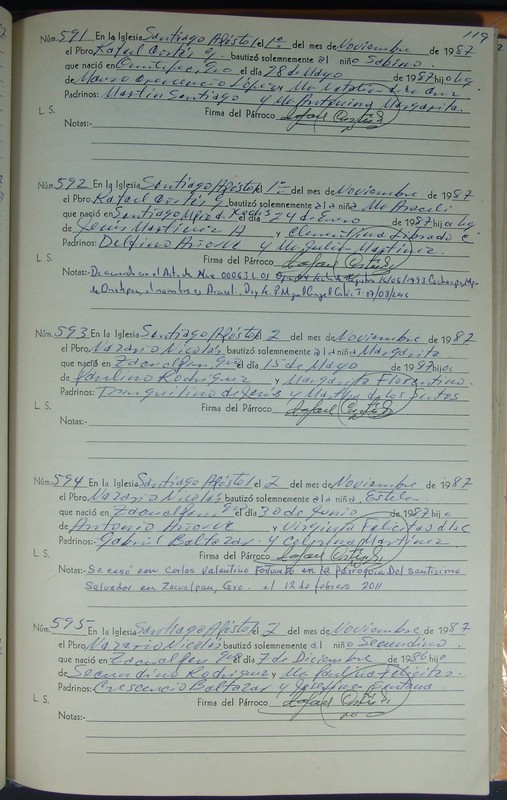 119
Núm. 591 En la Iglesia Santiago Apóstol el 1º del mes de Noviembre de 1987
el Pbro. Rafael Cortés G. bautizó solemnemente al niño Sabino.
que nació en Ometepec, Gro el día 28 de Mayo de 1987 hijo leg.
de Mauro Crescencio López y Ma. Natalia de la Cruz
Padrinos: Martin Santiago y Ma. Antonina Margarita.
L. S. Firma del Párroco Rafael Cortés G.
Notas:-
Núm. 592 En la Iglesia Santiago Apóstol el 1º del mes de Noviembre de 1987
el Pbro. Rafael Cortés G. bautizó solemnemente a la niña Ma Araceli
que nació en Santiago el día 24 de Enero de 1987 hija leg
de Jesús Martínez A y Clementina Librado C.
Padrinos: Delfino Añorve y Ma Julia Martínez.
L. S. Firma del Párroco Rafael Cortés G.
Notas:- De acuerdo con el Acta de Nac 00063 L 01 16/06/1993 Cochoapa, Mpo
de Ometepec, el nombre es Araceli. Doy fe. P. Miguel Angel 07/08/2016
Núm. 593 En la Iglesia Santiago Apóstol el 2 del mes de Noviembre de 1987
el Pbro. Nazario Nicolás bautizó solemnemente a la niña Margarita
que nació en Zacualpan, Gro el día 15 de Mayo de 1987 hija
de Paulino Rodríguez y Margarita Florentino.
Padrinos: Tranquilino de Jesús y Martha de los Santos
L. S. Firma del Párroco Rafael Cortés G.
Notas:-
Núm. 594 En la Iglesia Santiago Apóstol el 2 del mes de Noviembre de 1987
el Pbro. Nazario Nicolás bautizó solemnemente a la niña, Estela.
que nació en Zacualpan, Gro el día 30 de Junio de 1987 hija
de Antonio Añorve y Virginia Felicitas de la C
Padrinos:- Gabriel Baltazar y Celerina Martínez
L. S. Firma del Párroco Rafael Cortés G.
Notas:- Se casó con Carlos Valentino Fortunato en la Parroquia Del Santísimo
Salvador en Zacualpan, Gro. el 12 de febrero 2011
Núm. 595- En la Iglesia Santiago Apóstol el 2 del mes de Noviembre de 1987
el Pbro. Nazario Nicolás bautizó solemnemente al niño Secundino.
que nació en Zacualpan Gro el día 7 de Diciembre de 1986 hijo
de Secundino Rodríguez y Ma Paulina Felicitas.
Padrinos: Crescencio Baltazar y Josefina Santana
L. S. Firma del Párroco Rafael Cortés G.
Notas:-